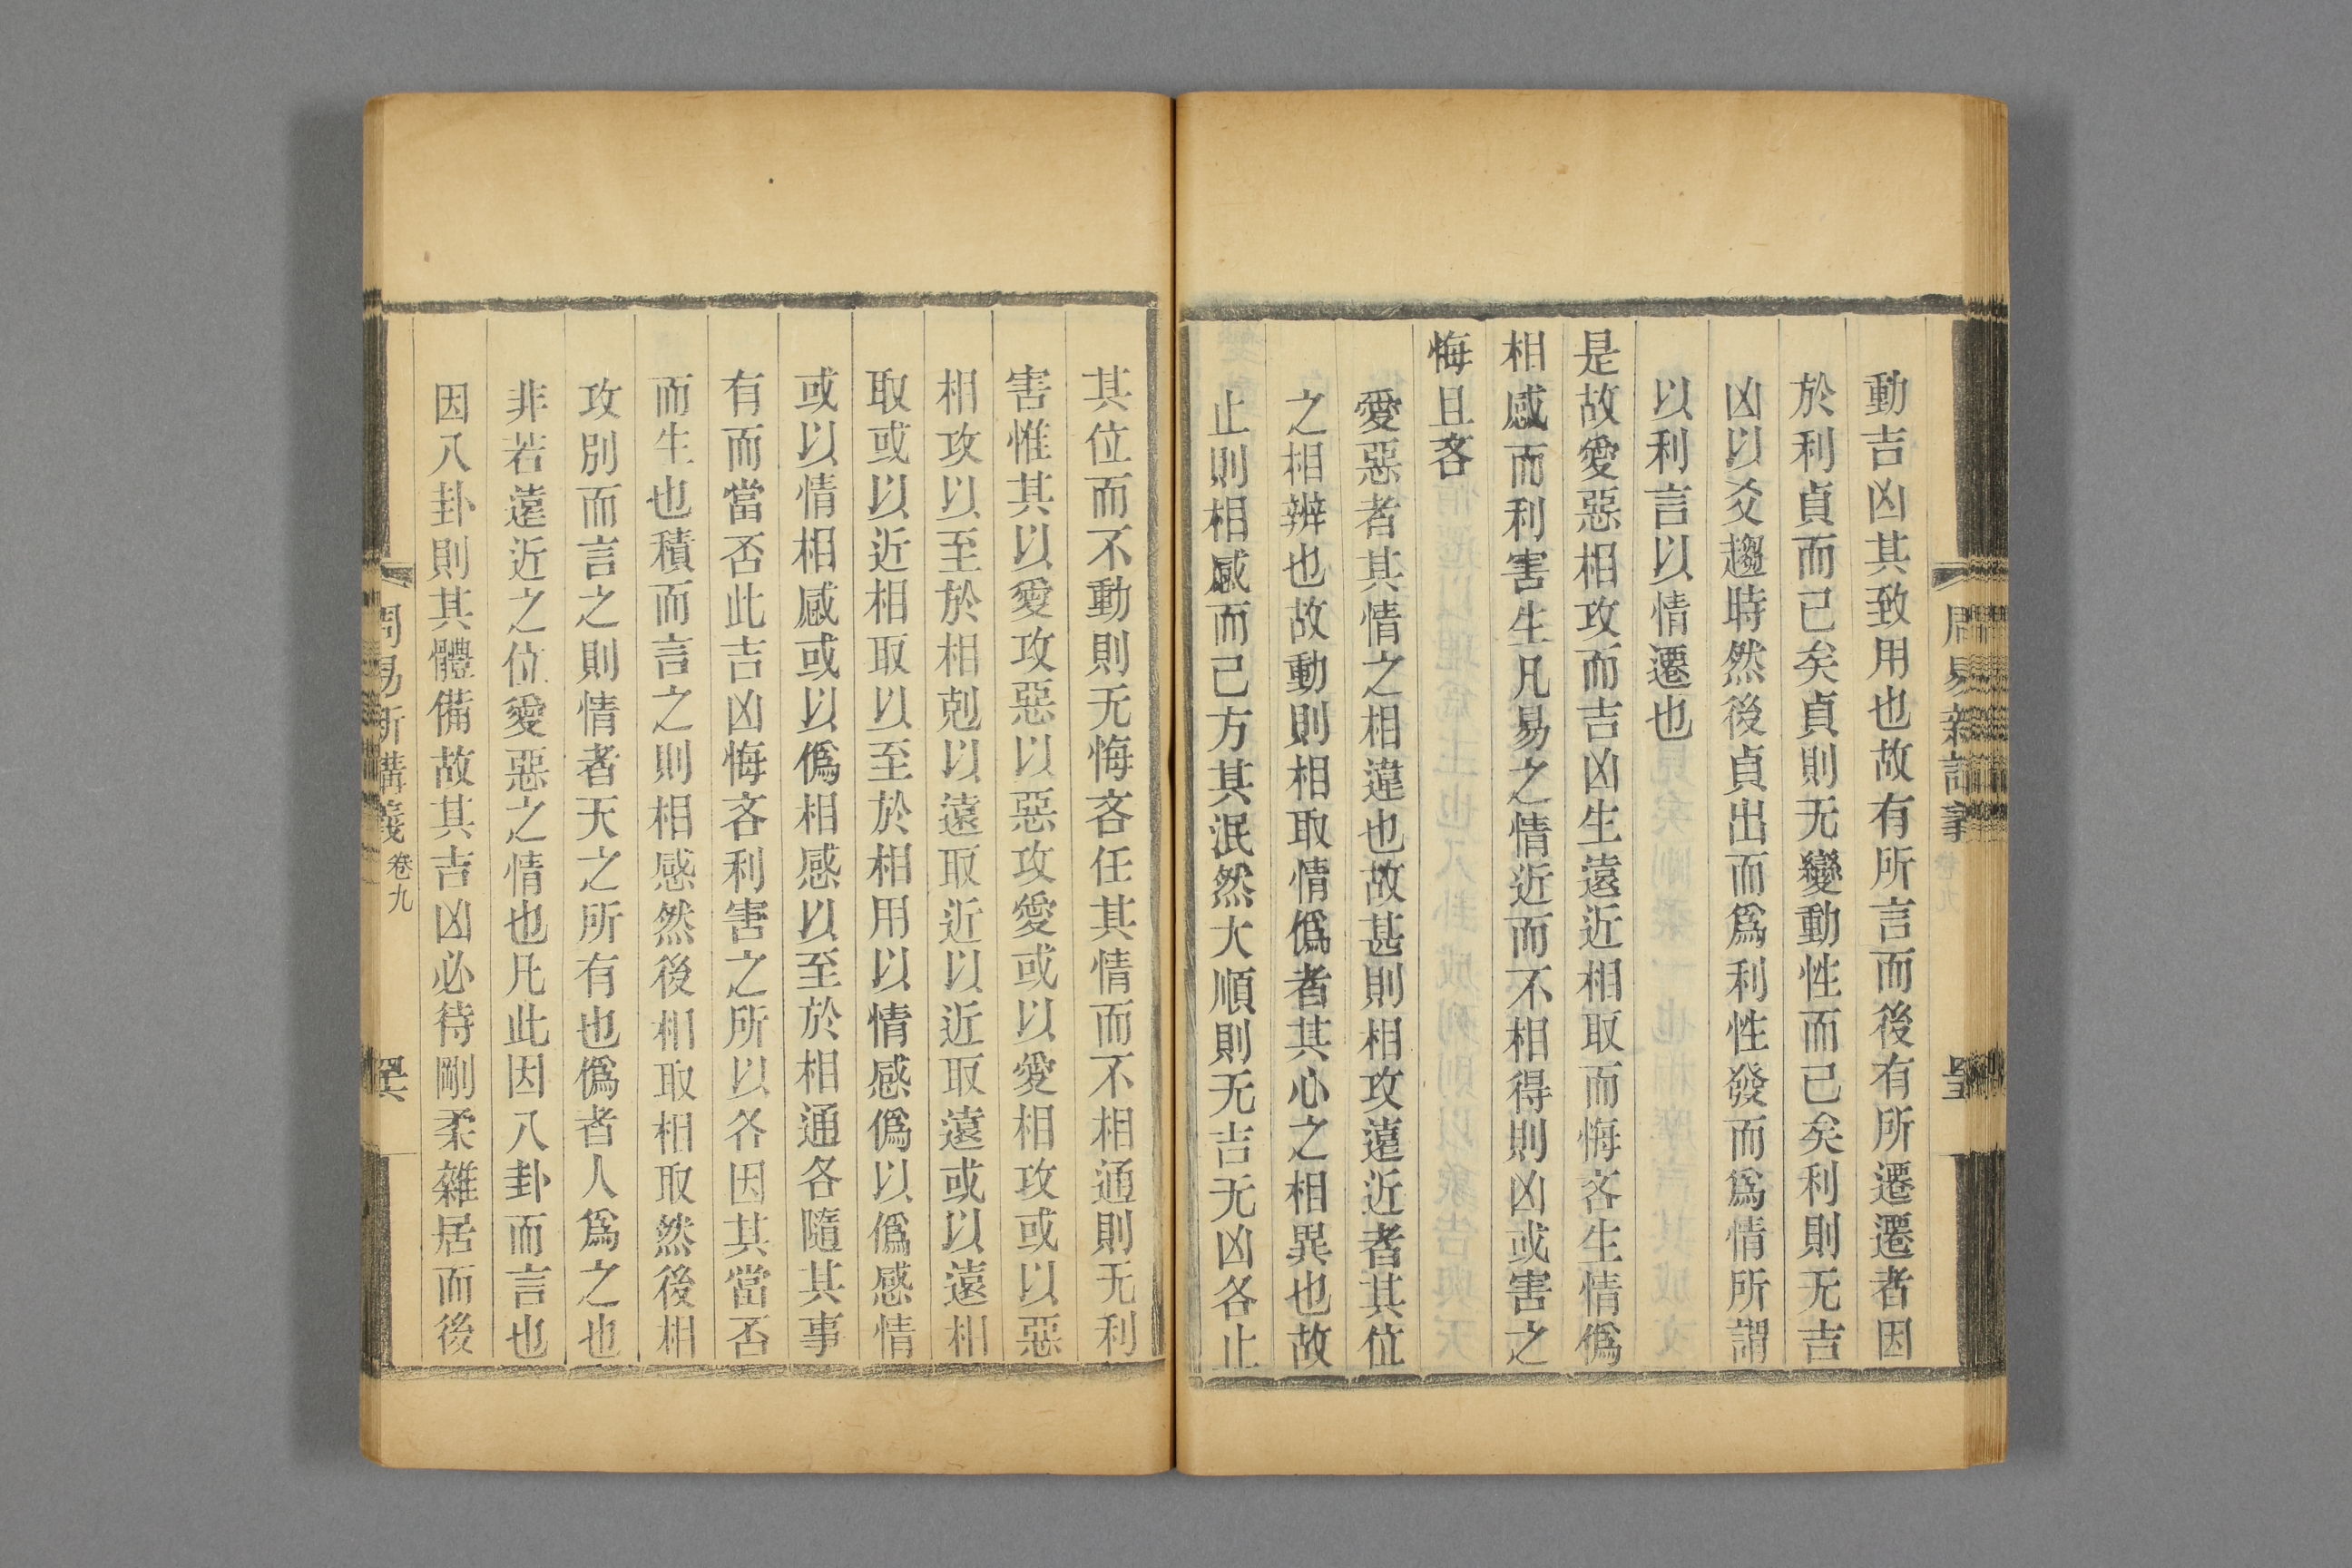 動吉凶其致用也故有所言而後有所遷遷者因
於利貞而已矣貞則无變動性而已矣利則无吉
凶以爻趨時然後貞出而爲利性發而爲情所謂
以利言以情遷也
是故愛惡相攻而吉凶生遠近相取而悔吝生情僞
相感而利害生凡易之情近而不相得則凶或害之
悔且吝
愛惡者其情之相違也故甚則相攻遠近者其位
之相辨也故動則相取情僞者其心之相異也故
止則相感而已方其泯然大順則无吉无凶各止
其位而不動則无悔吝任其情而不相通則无利
害惟其以愛攻惡以惡攻愛或以愛相攻或以惡
相攻以至於相剋以遠取近以近取遠或以遠相
取或以近相取以至於相用以情感僞以僞感情
或以情相感或以僞相感以至於相通各隨其事
有而當否此吉凶悔吝利害之所以各因其當否
而生也積而言之則相感然後相取相取然後相
攻別而言之則情者天之所有也僞者人爲之也
非若遠近之位愛惡之情也凡此因八卦而言也
因八卦則其體備故其吉凶必待剛柔雜居而後
周易新講義 卷九